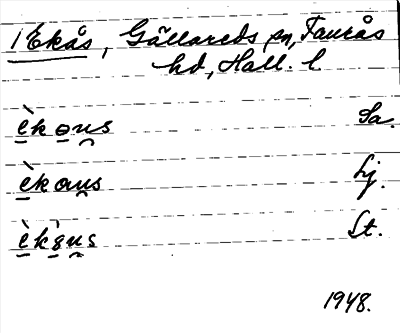 1 Ekås, Gällareds sn, Faurås
hd, Hall. l
èkɵus Sa.
èkaus Lj.
èkɵ̀us St.
1948.